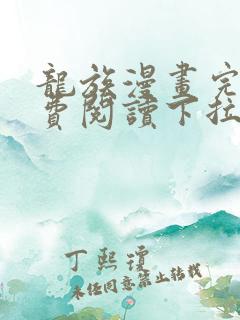 龍族漫畫完
費閱讀下拉
丁熙瓊
未經同意禁止轉載